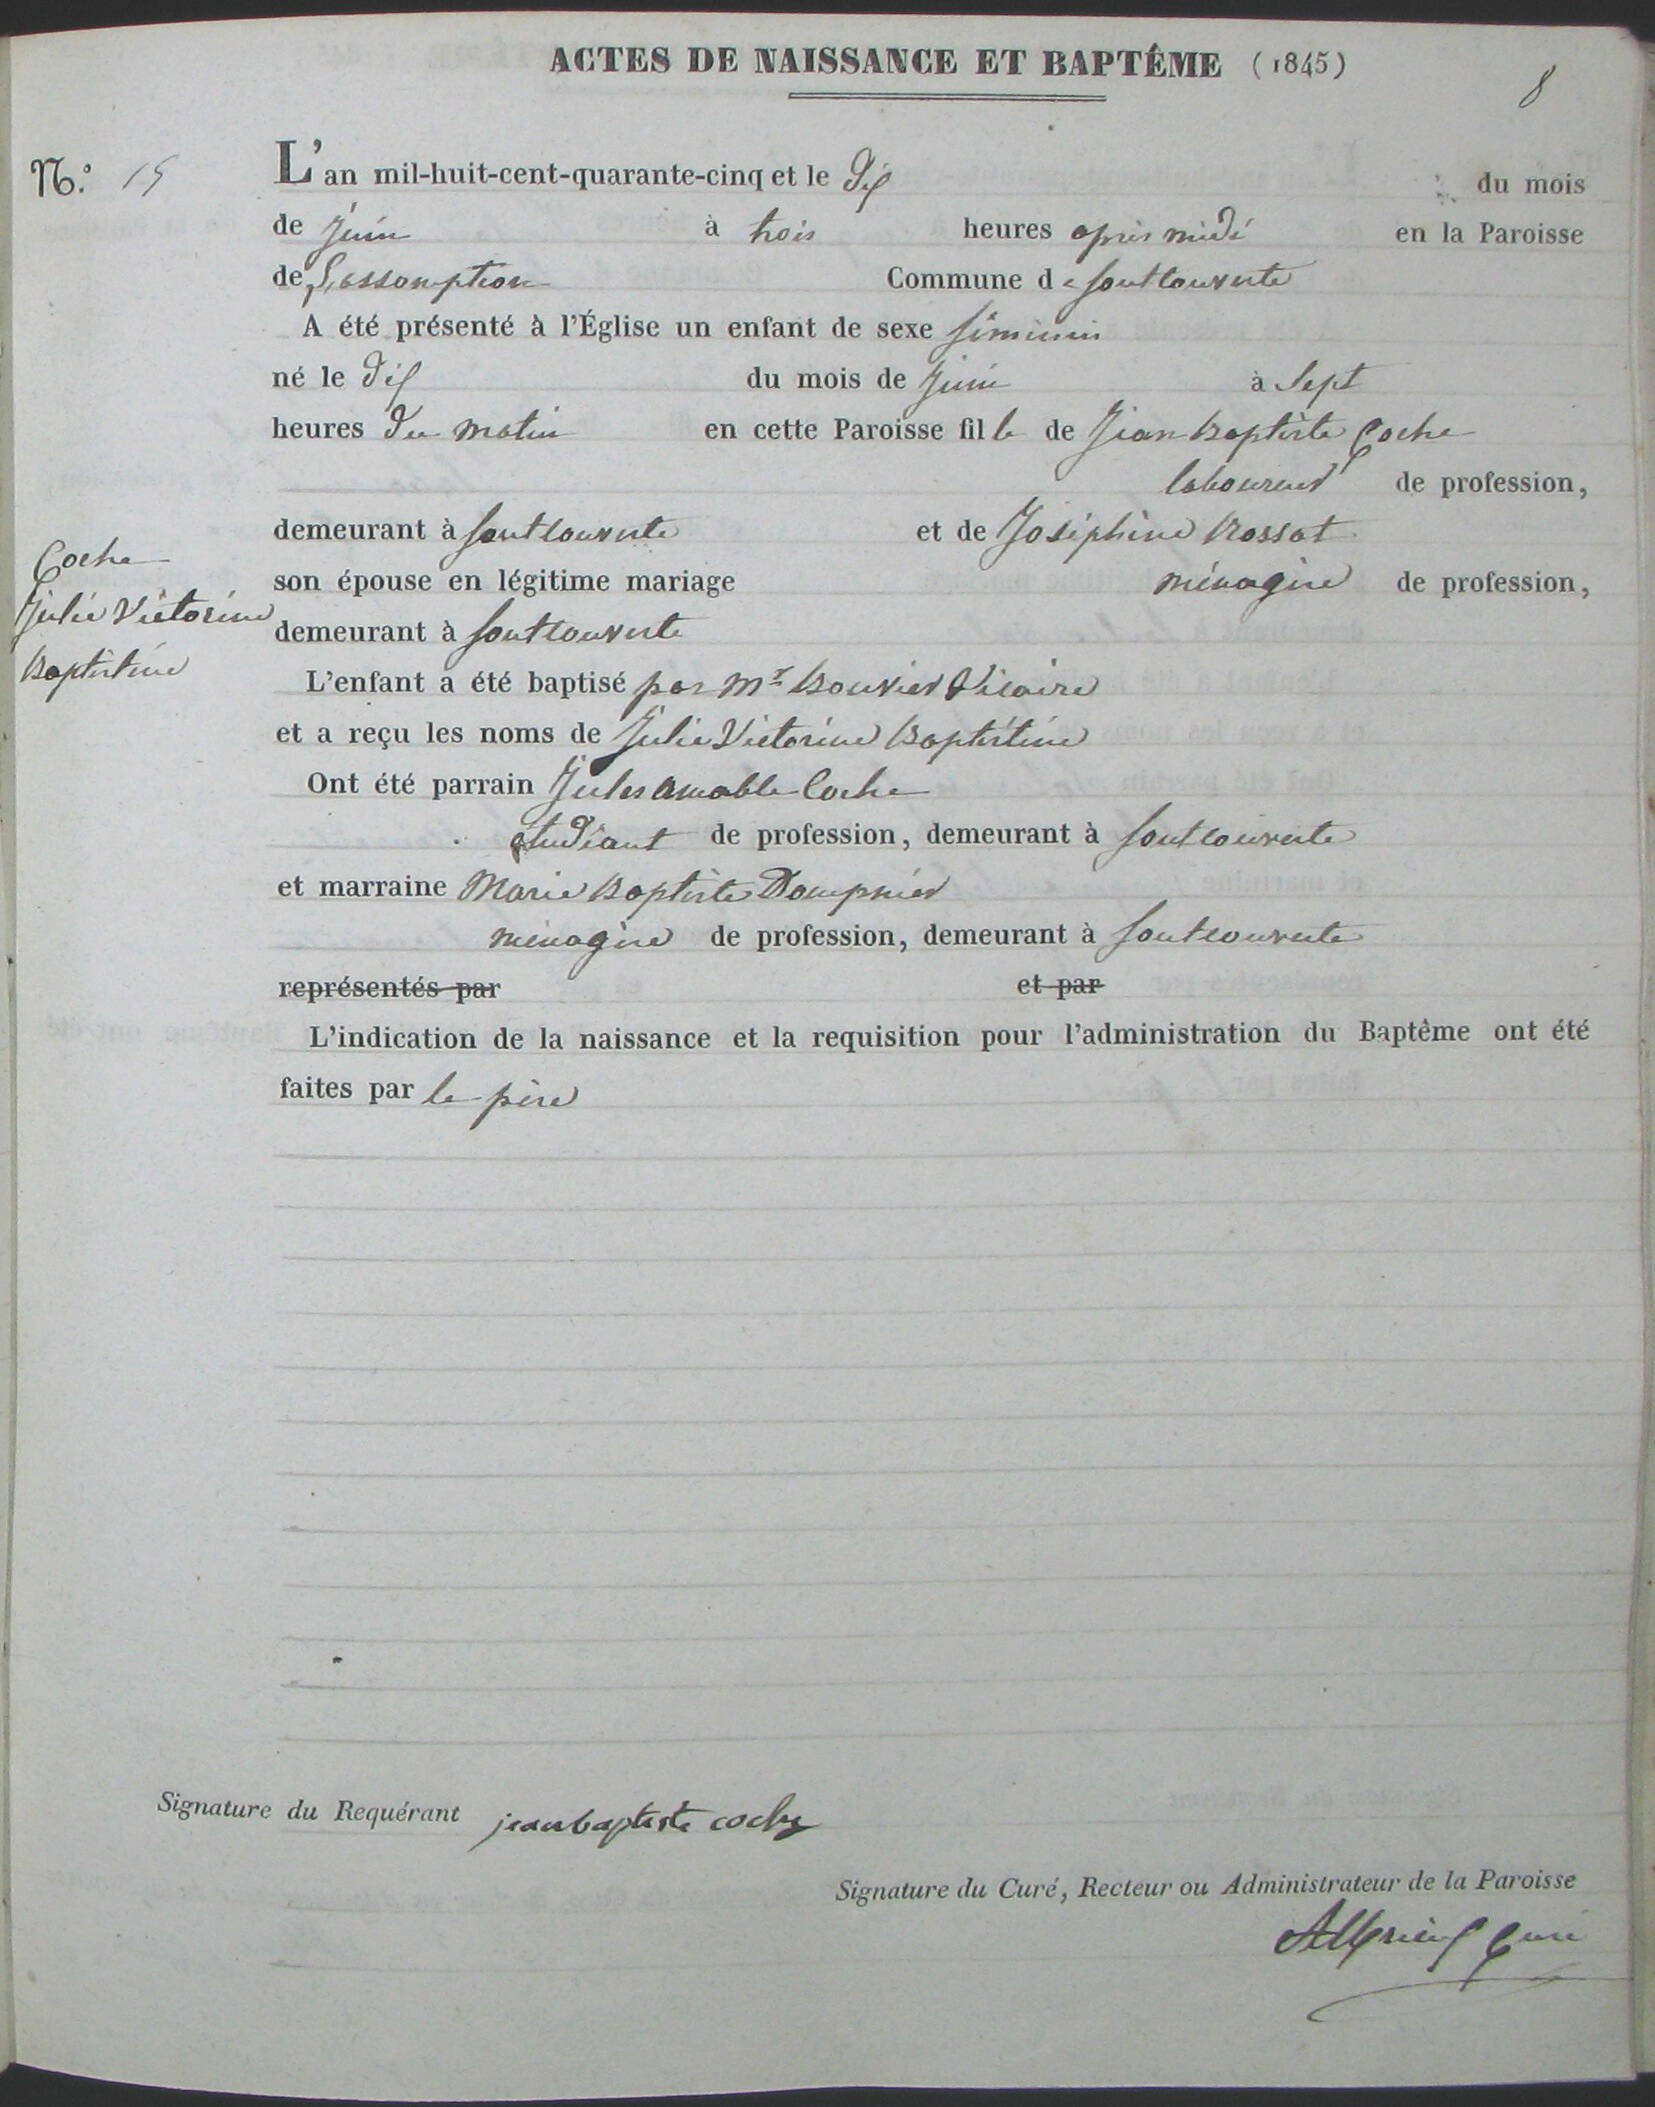 ACTES DE NAISSANCE ET BAPTÊME (1845)
8
N.º 15
L'an mil-huit-cent-quarante-cinq et le dix du mois
de juin à trois heures après midi en la Paroisse
de L'assomption Commune de Fontcouverte
A été présenté à l'Église un enfant de sexe féminin
né le dix du mois de juin à sept
heures du matin en cette Paroisse fille de Jean Baptiste Coche
laboureur de profession,
demeurant à fontcouverte et de Joséphine Rossat
son épouse en légitime mariage ménagère de profession,
demeurant à fontcouverte
Coche
Julie Victorine
Baptistine
L'enfant a été baptisé par Mr Bouvier Vicaire
et a reçu les noms de Julie Victorine Baptistine
Ont été parrain Jules Amable Coche
étudiant de profession, demeurant à fontcouverte
et marraine Marie Baptiste Dompnier
ménagère de profession, demeurant à fontcouverte
représentés par et par
L'indication de la naissance et la requisition pour l'administration du Baptême ont été
faites par le père
Signature du Requérant jean baptiste coche
Signature du Curé, Recteur ou Administrateur de la Paroisse
curé